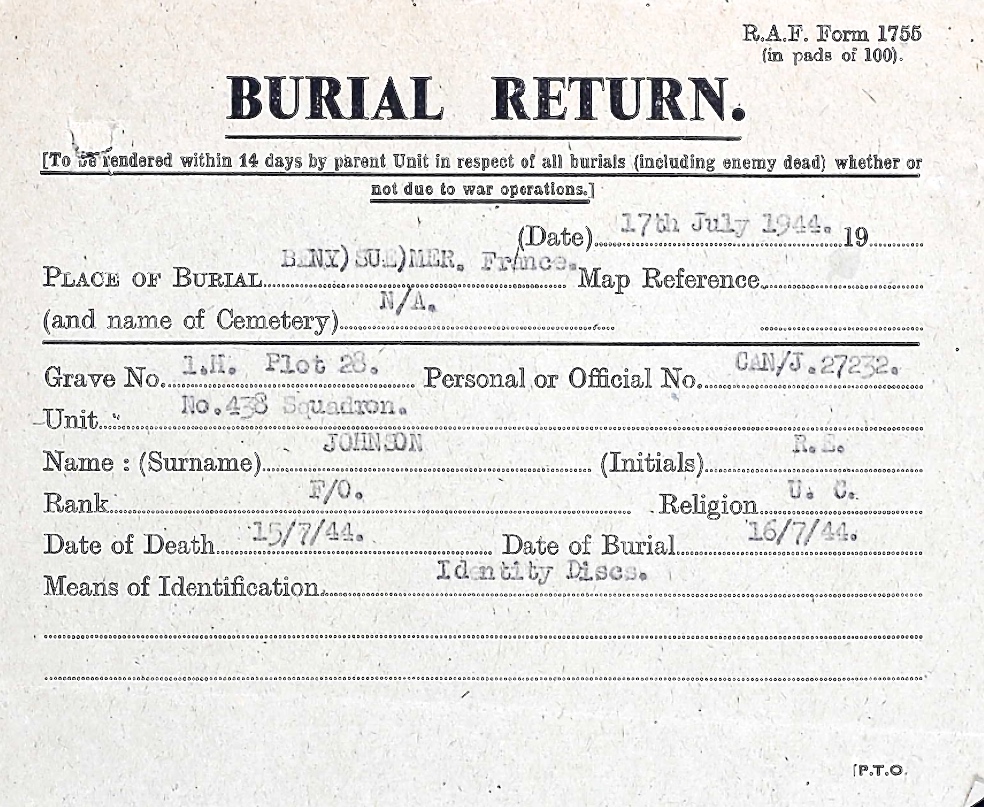 R.A.F. Form 1755
(in pads of 100).
BURIAL RETURN.
[To be rendered within 14 days by parent Unit in respect of all burials (including enemy dead) whether or
not due to war operations.]
(Date) 17th July 1944. 19
PLACE OF BURIAL BENY)SUR)MER. France. Map Reference
(and name of Cemetery) N/A.
Grave No. 1.H. Plot 28. Personal or Official No. CAN/J.27232.
Unit No.438 Squadron.
Name : (Surname) JOHNSON (Initials) R.E.
Rank F/O. Religion U. C.
Date of Death 15/7/44. Date of Burial 16/7/44.
Means of Identification Identity Discs.
[P.T.O.